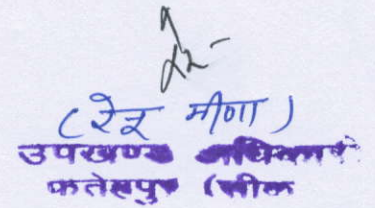 (रेनू मीणा)
उपखण्ड अधिकारी
फतेहपुर (सीक